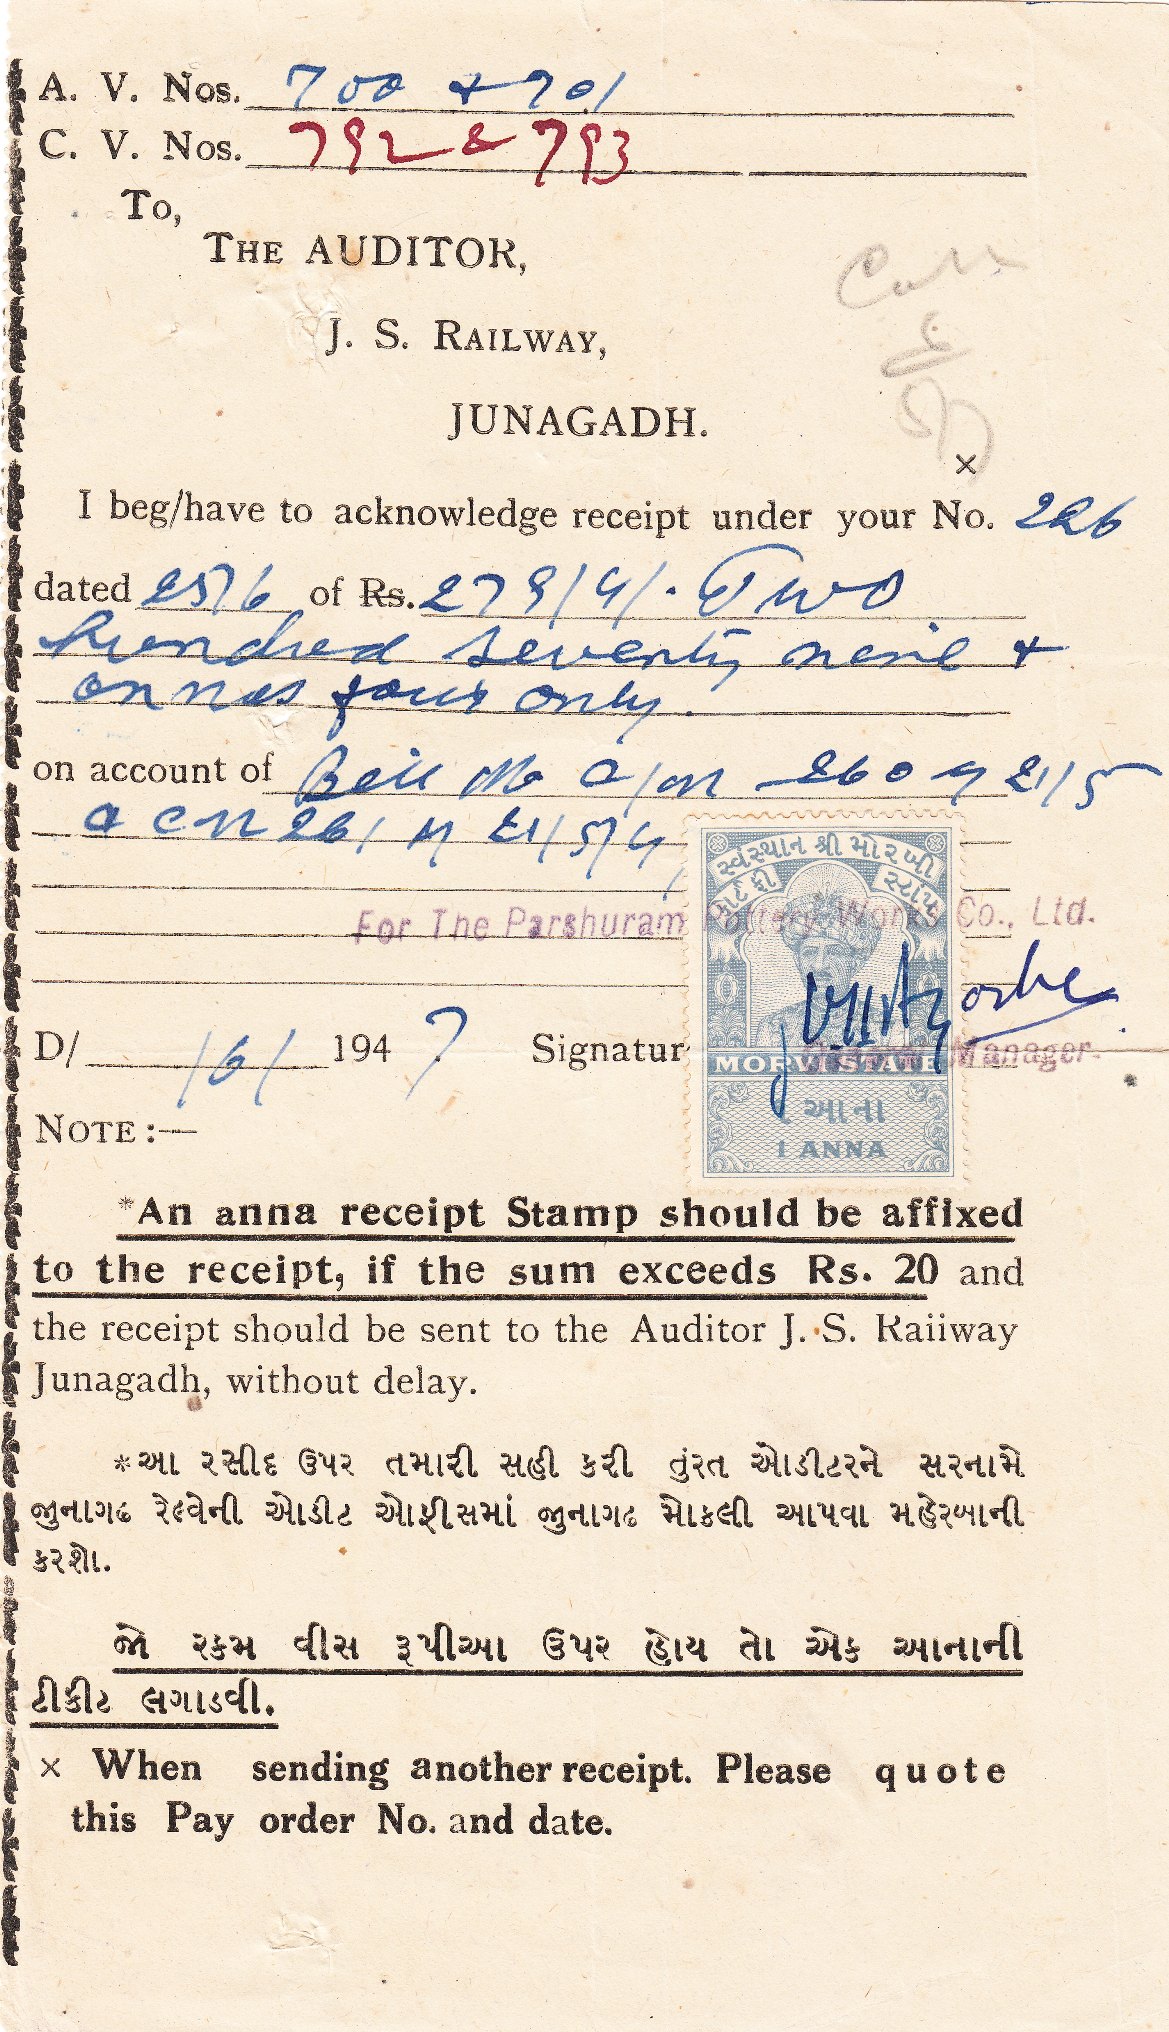 A. V. Nos. 700 & 701
C. V. Nos. 792 & 793
To,
THE AUDITOR,
J. S. RAILWAY,
JUNAGADH.
×
I beg/have to acknowledge receipt under your No. 226
dated 25/6 of Rs. 279/4/- Two
hundred seventy nine &
annas four only.
on account of Bill No 260 21/5
261 21/5/47
For The Parshuram Pottery Works Co., Ltd.
સ્વસ્થાન શ્રી મોરબી
કોર્ટ ફી સ્ટાંપ
D/ /6/ 1947 Signatur
Manager.
MORVI STATE
૧ આના
1 ANNA
NOTE :—
*An anna receipt Stamp should be affixed
to the receipt, if the sum exceeds Rs. 20 and
the receipt should be sent to the Auditor J. S. Raiiway
Junagadh, without delay.
*આ રસીદ ઉપર તમારી સહી કરી તુંરત ઓડીટરને સરનામે
જુનાગઢ રેલ્વેની ઓડીટ ઓફીસમાં જુનાગઢ મોકલી આપવા મહેરબાની
કરશો.
જો રકમ વીસ રૂપીઆ ઉપર હોય તો એક આનાની
ટીકીટ લગાડવી.
× When sending another receipt. Please quote
this Pay order No. and date.